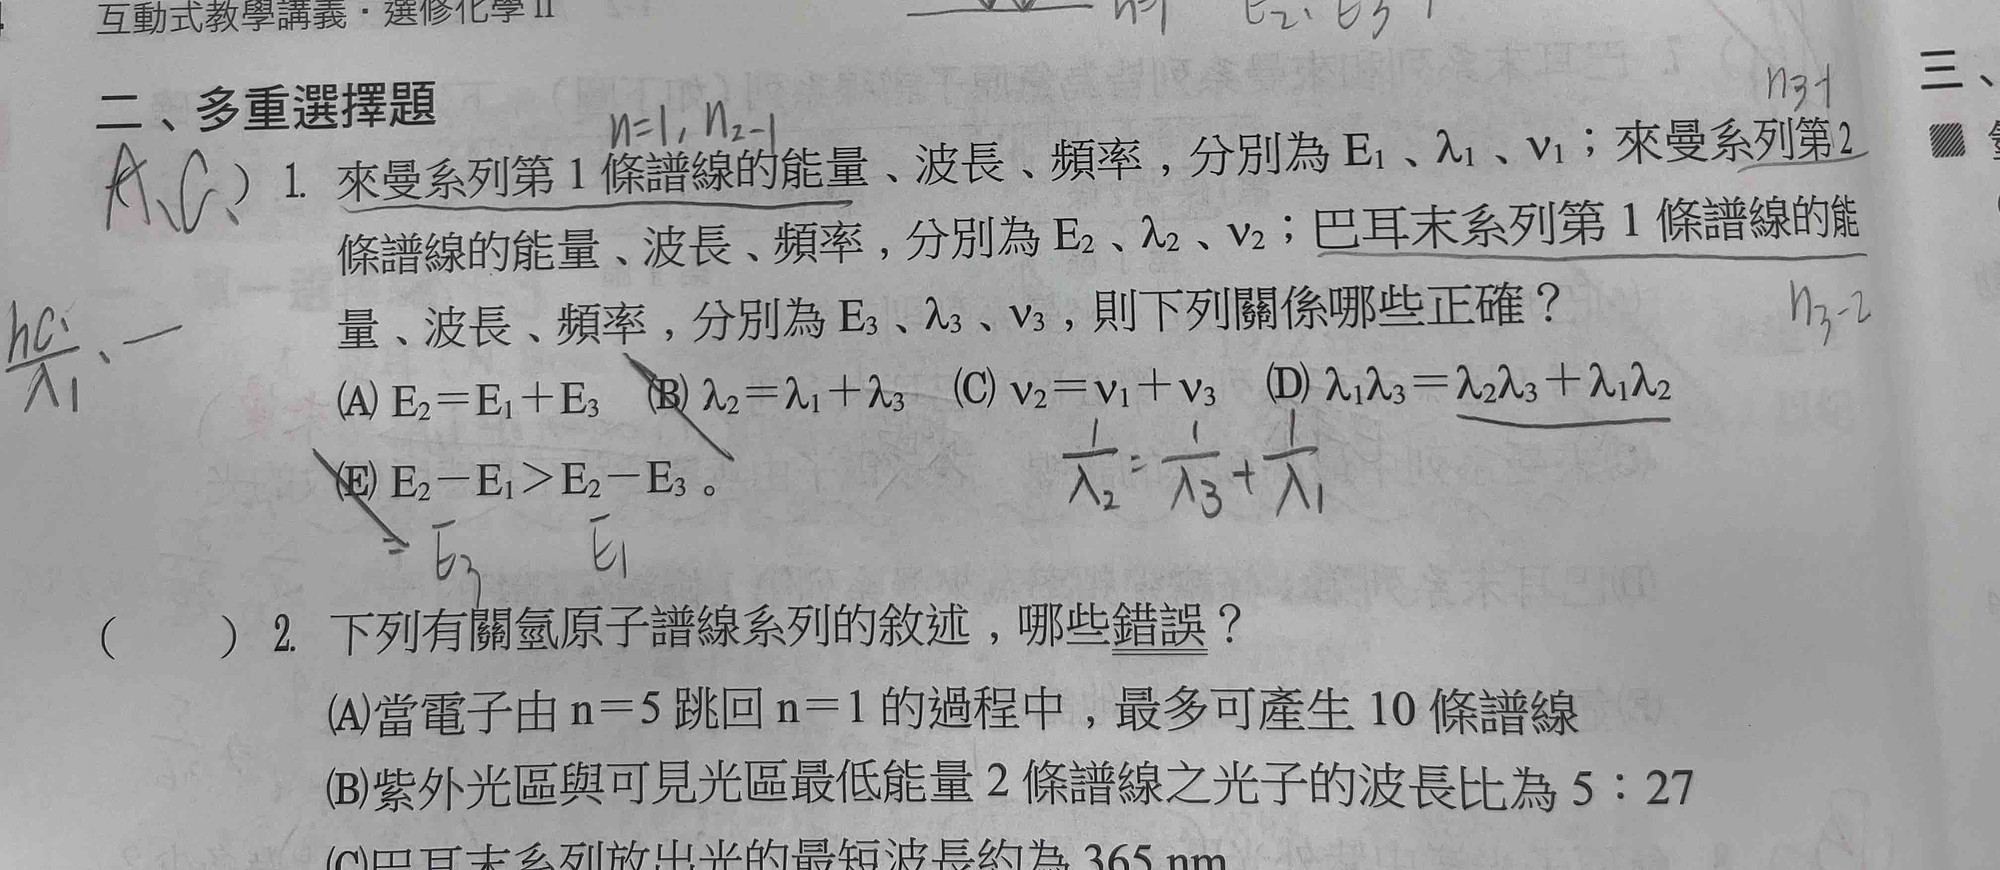 互動式教學講義・選修化學 II
n=1 E₂、E₃
二、多重選擇題
n=1, n₂₋₁
n₃₋₁
三、
(A、C、) 1. 來曼系列第 1 條譜線的能量、波長、頻率，分別為 E₁、λ₁、ν₁；來曼系列第 2
條譜線的能量、波長、頻率，分別為 E₂、λ₂、ν₂；巴耳末系列第 1 條譜線的能
量、波長、頻率，分別為 E₃、λ₃、ν₃，則下列關係哪些正確？
n₃₋₂
hc/λ₁、一
(A) E₂＝E₁＋E₃ (B) λ₂＝λ₁＋λ₃ (C) ν₂＝ν₁＋ν₃ (D) λ₁λ₃＝λ₂λ₃＋λ₁λ₂
1/λ₂ = 1/λ₃ + 1/λ₁
(E) E₂－E₁＞E₂－E₃。
= E₃ E₁
( ) 2. 下列有關氫原子譜線系列的敘述，哪些錯誤？
(A)當電子由 n＝5 跳回 n＝1 的過程中，最多可產生 10 條譜線
(B)紫外光區與可見光區最低能量 2 條譜線之光子的波長比為 5：27
(C)巴耳末系列放出光的最短波長約為 365 nm